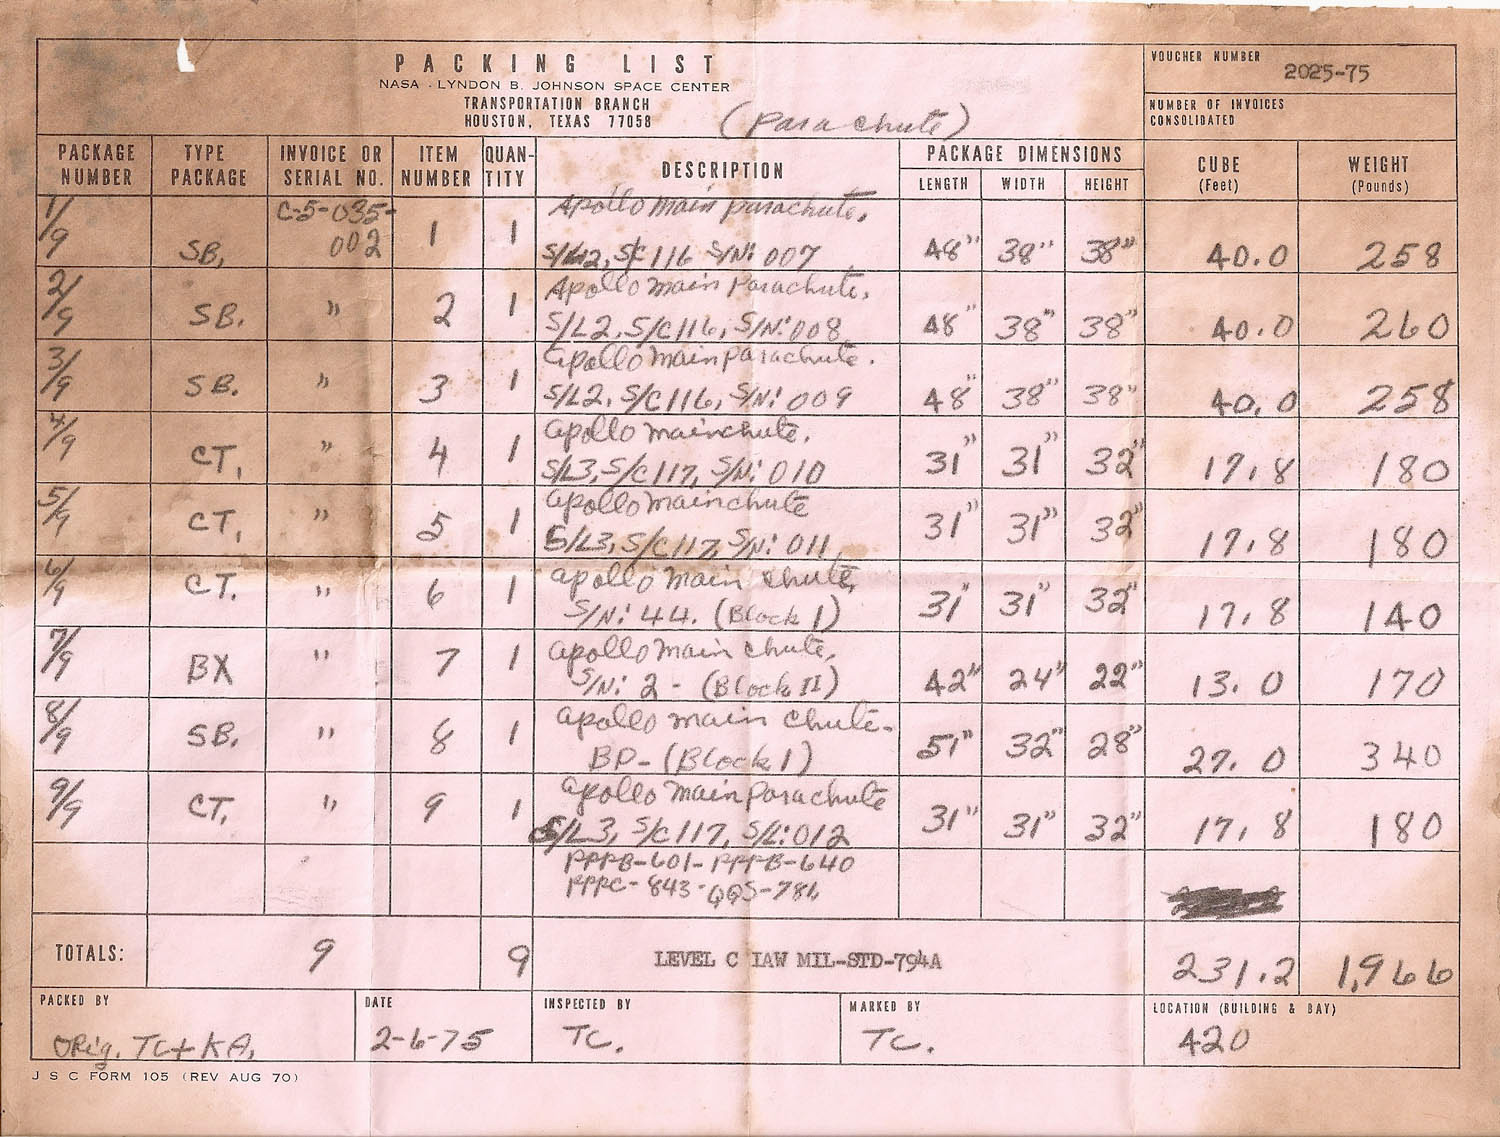 PACKING LIST
NASA - LYNDON B. JOHNSON SPACE CENTER
TRANSPORTATION BRANCH
HOUSTON, TEXAS 77058
(Parachute)
VOUCHER NUMBER
2025-75
NUMBER OF INVOICES CONSOLIDATED
PACKAGE NUMBER TYPE PACKAGE INVOICE OR SERIAL NO. ITEM NUMBER QUAN-TITY DESCRIPTION PACKAGE DIMENSIONS LENGTH WIDTH HEIGHT CUBE (Feet) WEIGHT (Pounds)
1/9 SB, C-5-035-002 1 1 Apollo Main parachute, 48" 38" 38" 40.0 258
S/L2, S/C 116 S/N: 007
2/9 SB. " 2 1 Apollo Main Parachute, 48" 38" 38" 40.0 260
S/L2, S/C116, S/N: 008
3/9 SB. " 3 1 Apollo Main Parachute. 48" 38" 38" 40.0 258
S/L2, S/C116, S/N: 009
4/9 CT, " 4 1 Apollo Mainchute, 31" 31" 32" 17.8 180
S/L3, S/C117, S/N: 010
5/9 CT, " 5 1 Apollo Mainchute 31" 31" 32" 17.8 180
S/L3, S/C117, S/N: 011
6/9 CT. " 6 1 Apollo Main chute, 31" 31" 32" 17.8 140
S/N: 44. (Block I)
7/9 BX " 7 1 Apollo Main chute, 42" 24" 22" 13.0 170
S/N: 2 - (Block II)
8/9 SB. " 8 1 Apollo Main Chute- 51" 32" 28" 27.0 340
BP- (Block I)
9/9 CT, " 9 1 Apollo Main Parachute 31" 31" 32" 17.8 180
S/L3, S/C117, S/L: 012
PPPB-601- PPPB-640
PPPC-843-QQS-781
TOTALS: 9 9 LEVEL C IAW MIL-STD-794A 231.2 1,966
PACKED BY DATE INSPECTED BY MARKED BY LOCATION (BUILDING & BAY)
Orig. TC+KA. 2-6-75 TC. TC. 420
J S C FORM 105 (REV AUG 70)